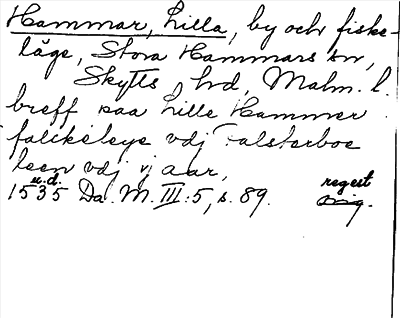 Hammar, Lilla, by och fiske-
läge, Stora Hammars sn,
Skytts hd, Malm. l.
breff paa Lille Hammer
falckeleye vdj Falsterboe
leen vdj vj aar,
u.d. regest
1535 Da. M. III:5, s. 89. orig.